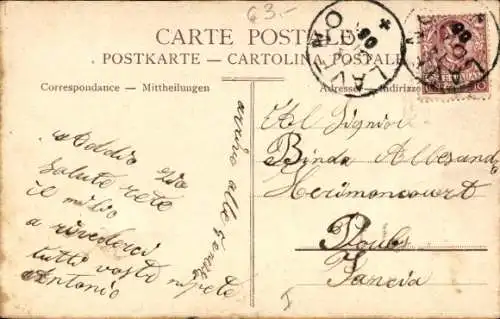 63.-
CARTE POSTALE
POSTKARTE — CARTOLINA POSTALE
Correspondance — Mittheilungen
Adresse — Indirizzo
LAVENO
Addio Zio
Salute
il mio
a rivederci
tutti vostri nipote
Antonio
alle
Al Signior
Binda Allesand
Herimoncourt
Doubs
Francia